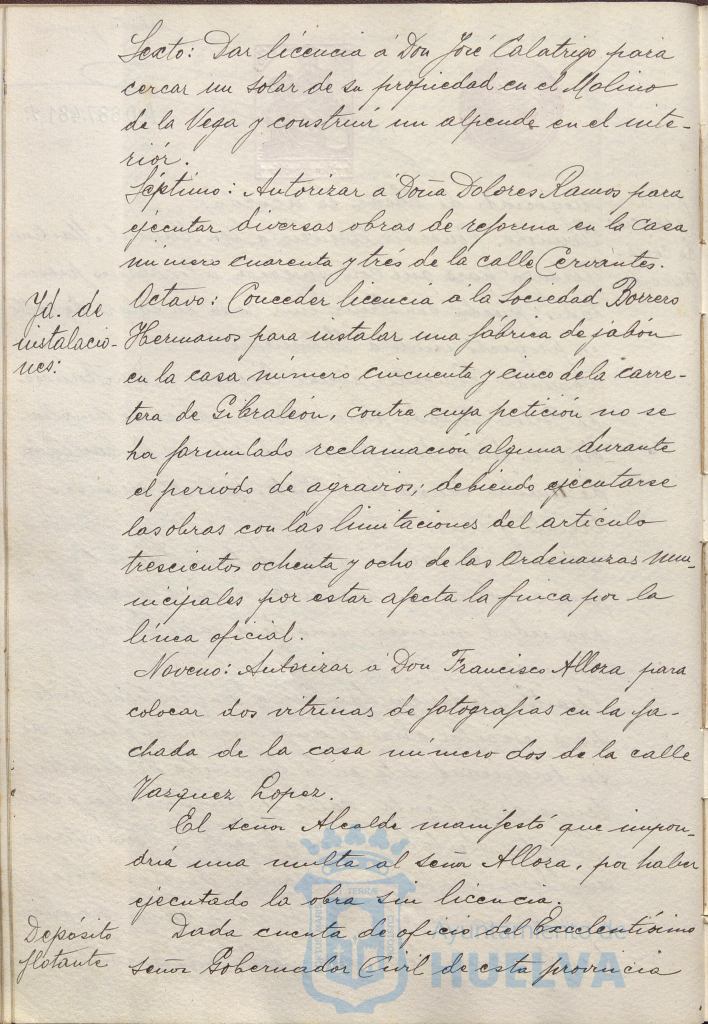 Sexto: Dar licencia á Don José Calatrigo para
cercar un solar de su propiedad en el Molino
de la Vega y construir un alpende en el inte-
riór.
Séptimo: Autorizar á Doña Dolores Ramos para
ejecutar diversas obras de reforma en la casa
número cuarenta y trés de la calle Cervantes.
Yd. de
instalacio-
nes:
Octavo: Conceder licencia á la Sociedad Borrero
Hermanos para instalar una fábrica de jabón
en la casa número cincuenta y cinco de la carre-
tera de Gibraleón, contra cuya petición no se
ha formulado reclamación alguna durante
el período de agravios; debiendo ejecutarse
las obras con las limitaciones del artículo
trescientos ochenta y ocho de las Ordenanzas Mu-
nicipales por estar afecta la finca por la
línea oficial.
Noveno: Autorizar á Don Francisco Allora para
colocar dos vitrinas de fotografías en la fa-
chada de la casa número dos de la calle
Vazquez Lopez.
El señor Alcalde manifestó que impon-
dría una multa al señor Allora, por haber
ejecutado la obra sin licencia.
Depósito
flotante
Dada cuenta de oficio del Excelentísimo
señor Gobernador Civil de esta provincia
Ayuntamiento de
HUELVA